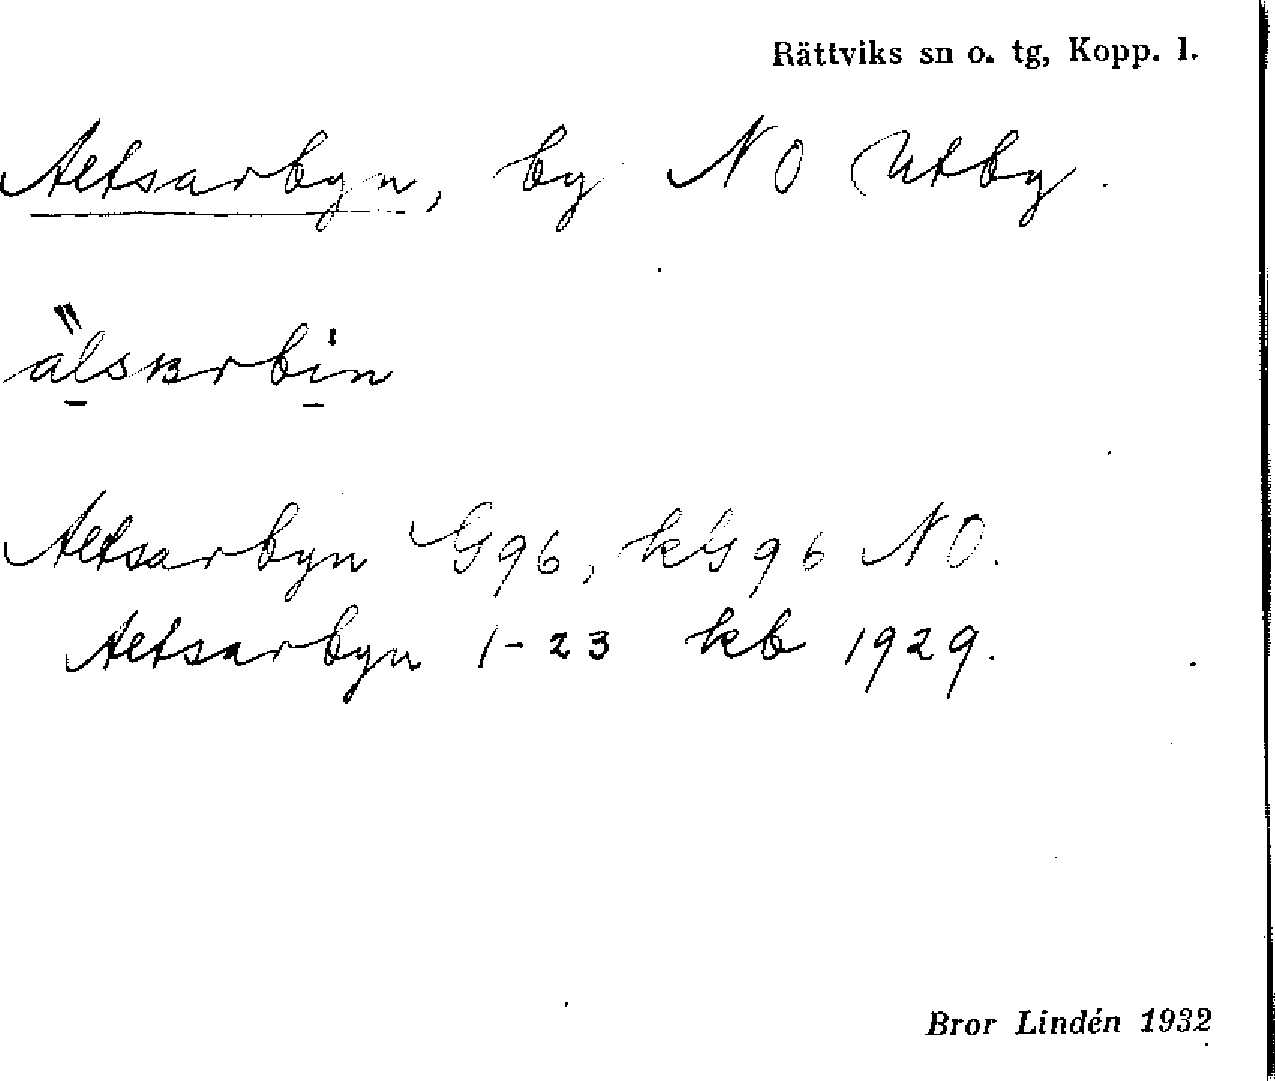 Rättviks sn o. tg, Kopp. l.
Altsarbyn, by NO Utby.
Altsarbyn G96, kG96 NO.
Altsarbyn 1-23 kb 1929.
Bror Lindén 1932